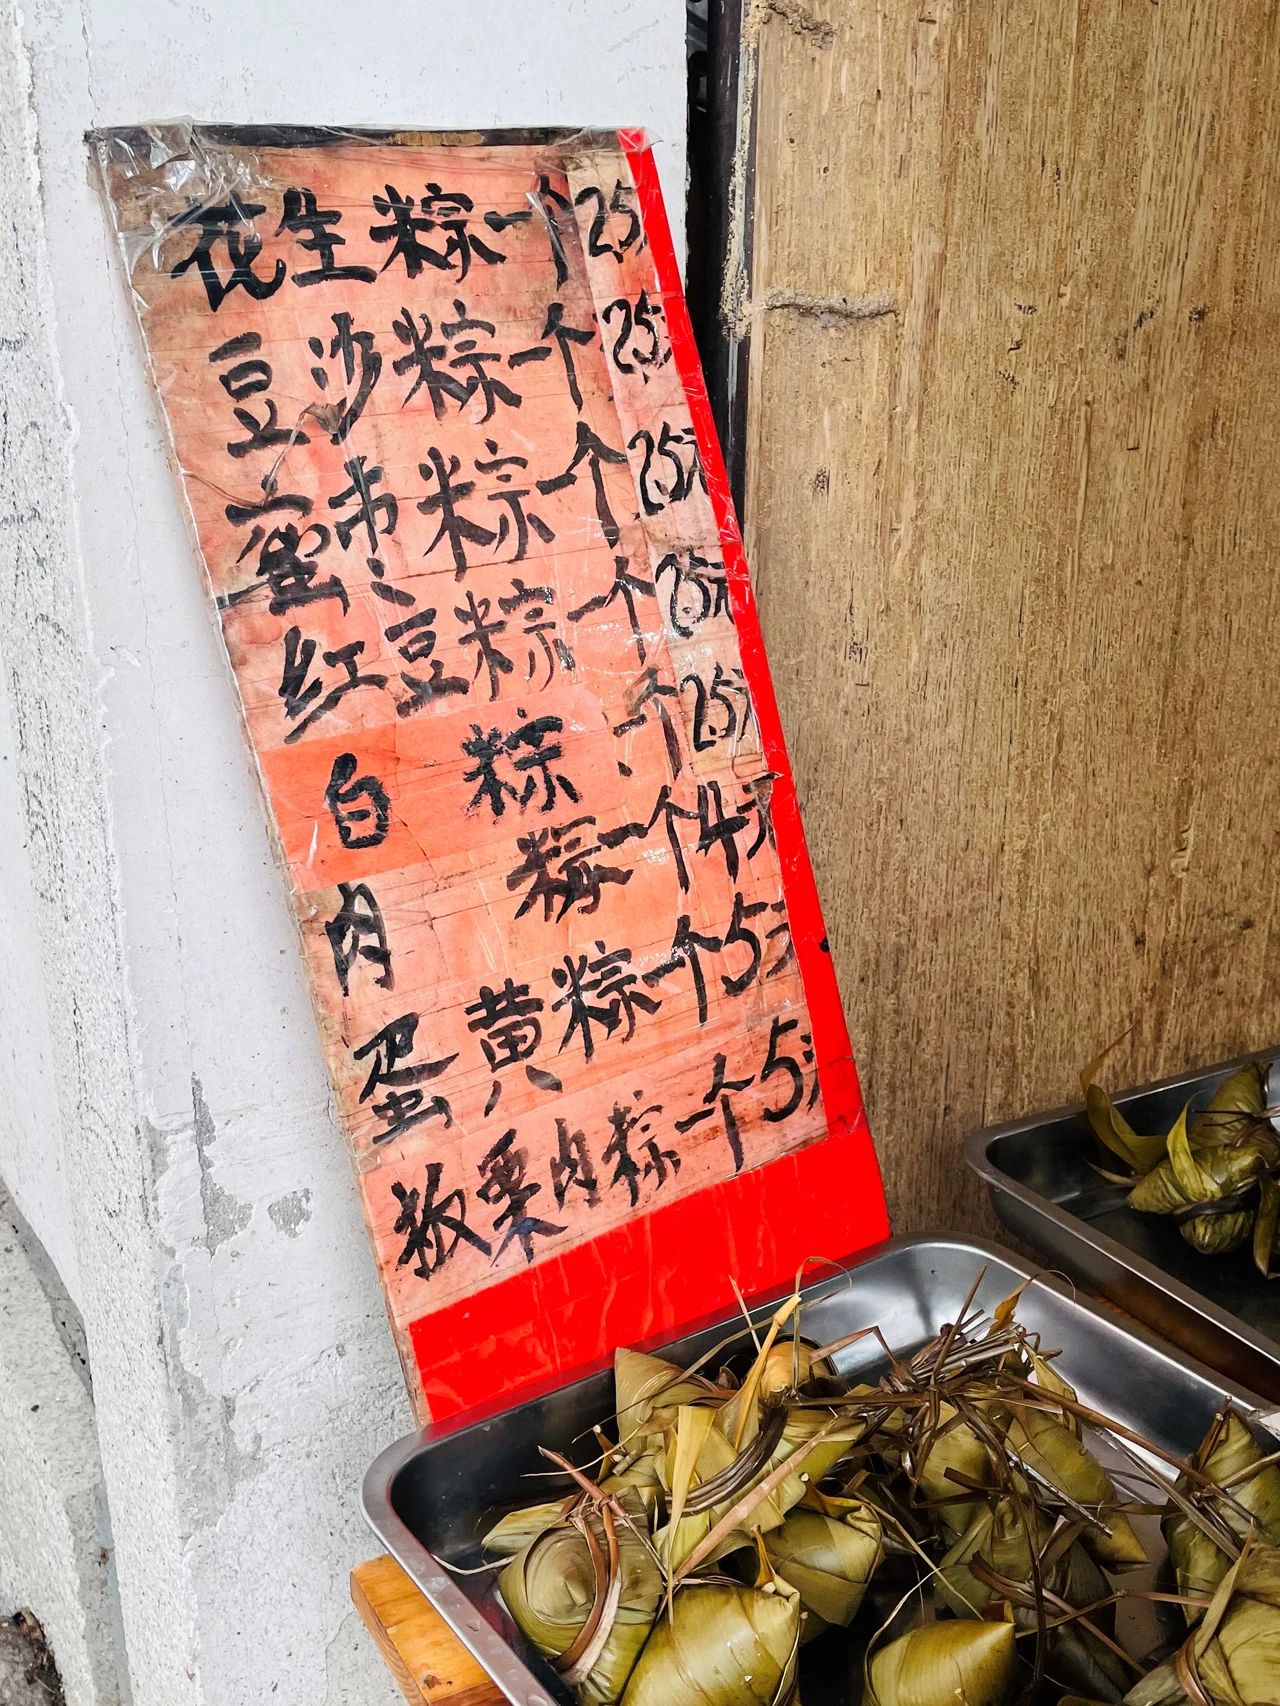 花生粽一个2.5元
豆沙粽一个2.5元
蜜枣粽一个2.5元
红豆粽一个2.5元
白粽一个2.5元
肉粽一个4元
蛋黄粽一个5元
板栗肉粽一个5元